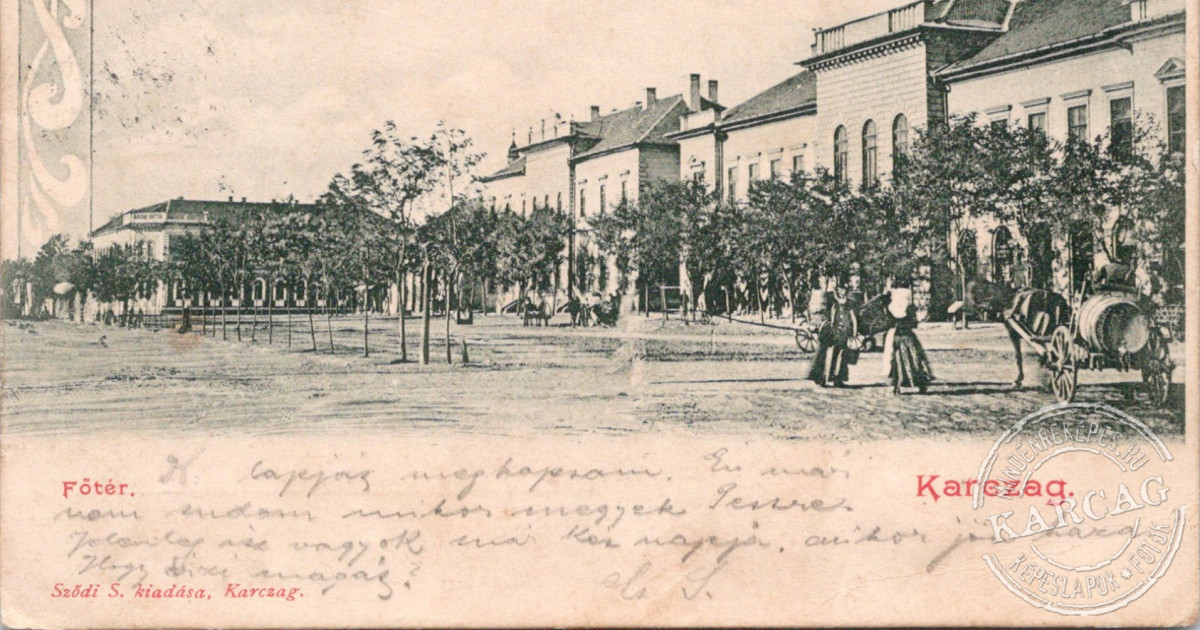 Főtér.
Karczag.
K. lapját megkapsam. Én már
nem tudom mikor megyek Pestre
Jelenleg is vagyok már két napja, mikor jön haza
Hogy érzi magát?
Sződi S. kiadása, Karczag.
MINDENREKEPES.RU
KARCAG
KÉPESLAPOK * FOTÓK